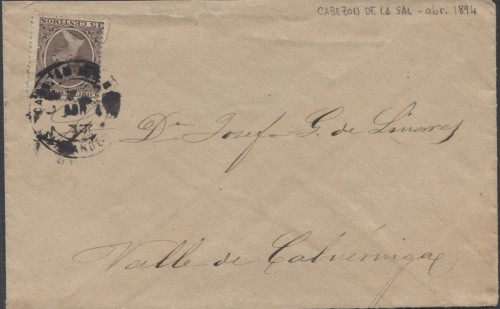 CABEZON DE LA SAL - abr. 1894
Dª Josefa G. de Linares
Valle de Cabuérniga